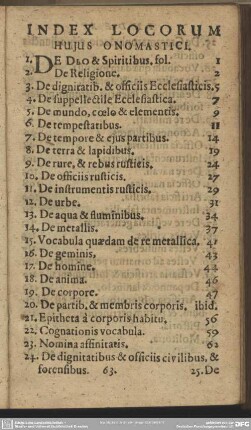 INDEX LOCORUM
HUJUS ONOMASTICI.
1. DE DEO & Spiritibus, fol. 1
2. De Religione. 2
3. De dignitatib. & officiis Ecclesiasticis. 5
4. De suppellectile Ecclesiastica. 7
5. De mundo, cœlo & elementis. 9
6. De tempestatibus. 11
7. De tempore & ejus partibus. 14
8. De terra & lapidibus. 19
9. De rure, & rebus rusticis. 24
10. De officiis rusticis. 27
11. De instrumentis rusticis. 29
12. De urbe. 31
13. De aqua & fluminibus. 34
14. De metallis. 37
15. Vocabula quædam de re metallica. 41
16. De geminis, 43
17. De homine. 44
18. De anima. 46
19. De corpore. 47
20. De partib. & membris corporis. ibid.
21. Epitheta à corporis habitu. 56
22. Cognationis vocabula. 59
23. Nomina affinitatis. 62
24. De dignitatibus & officiis civilibus, &
forensibus. 63. 25. De